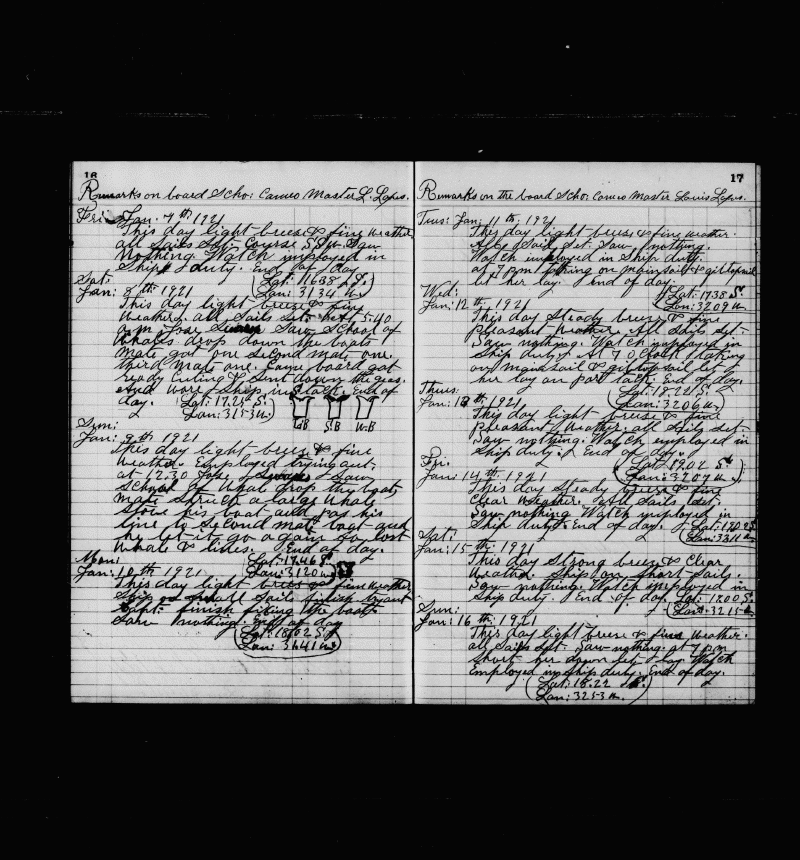 16
Remarks on board Scho: Cameo Master L. Lopes.
Fri: Jan. 7th 1921
This day light breese & fine weather
all Sails Set. Course S.S.W. Saw
Nothing. Watch imployed in
Ship duty. End of day
Lat: 16.38 S.
Sat:
Jan: 8th 1921
Lan: 31.34 W.
This day light breese & fine
weather. all Sails Set. at 5.40
a.m. Saw School of
Whales drop down the boats
Mate got one second mate one.
third Mate one. Came board got
ready Cuting & sent down the gear.
and work Ship in End of
day. Lat: 17.25 S.
Lan: 31.53 W.
LB SB WB
Sun:
Jan: 9th 1921
this day light breese & fine
weather. Employed trying out.
at 12.30 Saw
School of Whal drop the boat
Mate Struck a large Whale
Stove his boat and pas his
line to Second mate boat and
he let it go again so lost
Whale & lines. End of day.
Mon:
Lat: 17.46 S.
Jan: 10th 1921
Lan: 31.20 W.
This day light breese & fine weather
Ship all Sails finish tryout
Capt. finish fixing the boat
Saw nothing. End of day
Lat: 18.02 S.
Lan: 31.41 W.
17
Remarks on the board Scho: Cameo Master Louis Lopes.
Tus: Jan: 11th 1921
This day light breese & fine weather.
All Sail Set. Saw nothing.
Watch imployed in Ship duty.
at 7 pm taking on mainsail & gib topsail
let her lay. End of day.
Wed:
Lat: 17.38 S.
Jan: 12th 1921
Lan: 32.09 W.
This day Steady breese & fine
pleasant weather. All Sails set.
Saw nothing. Watch imployed in
Ship duty. At 7 O Clock taking
on Mainsail & gib topsail let
her lay on port tack. End of day.
Thurs:
Lat: 18.22 S.
Jan: 13th 1921
Lan: 32.06 W.
This day light breese & fine
pleasant Weather. all Sails set.
Saw nothing. Watch employed in
Ship duty. End of day.
Fri.
Lat: 19.02 S.
Jan: 14th 1921
Lan: 32.07 W.
This day Steady breese & fine
Clear Weather. All Sails Set.
Saw nothing Watch employed in
Ship duty. End of day. Lat: 19.02 S
Sat:
Lan: 33.11 W.
Jan: 15th 1921
This day Strong breese & Clear
Weather. Ship on Short Sails.
Saw nothing. Watch employed in
Ship duty. End of day. Lat: 18.00 S.
Sun:
Lan: 32.15 W.
Jan: 16th 1921
This day light breese & fine Weather.
all Sails Set. Saw nothing. at 7 pm
Short her down let lay. Watch
Employed in Ship duty. End of day.
Lat: 18.22 S.
Lan: 32.53 W.